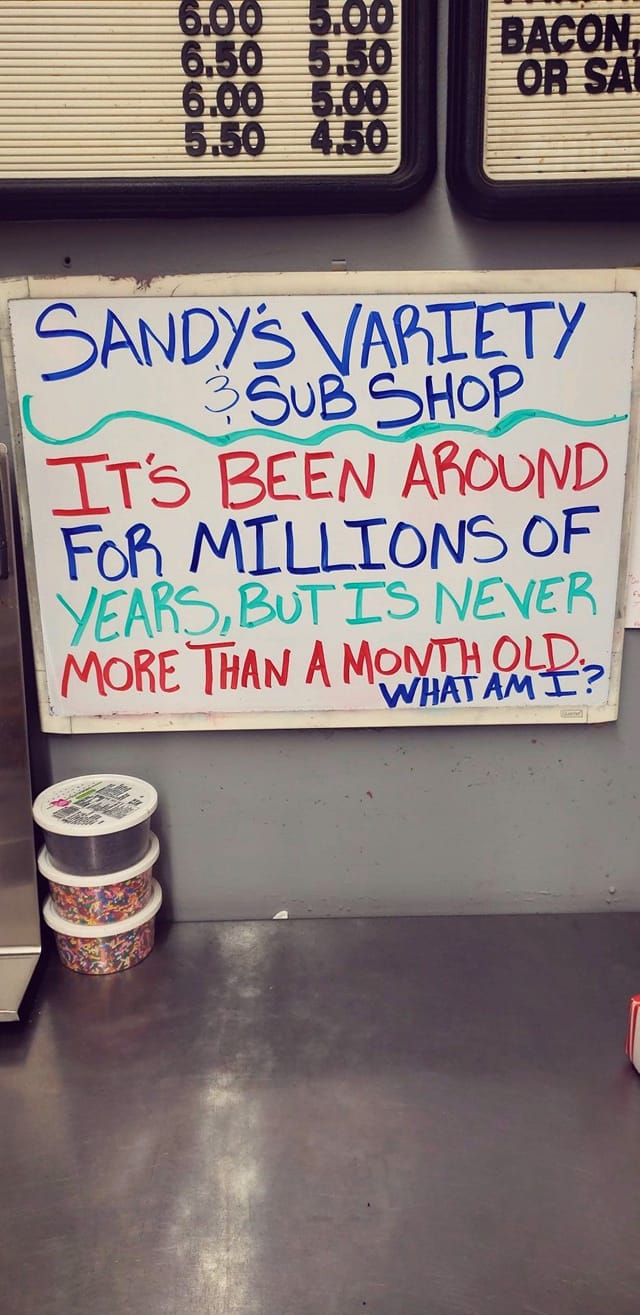 6.00 5.00
6.50 5.50
6.00 5.00
5.50 4.50
BACON,
OR SA
SANDY'S VARIETY
& SUB SHOP
IT'S BEEN AROUND
FOR MILLIONS OF
YEARS, BUT IS NEVER
MORE THAN A MONTH OLD.
WHAT AM I?